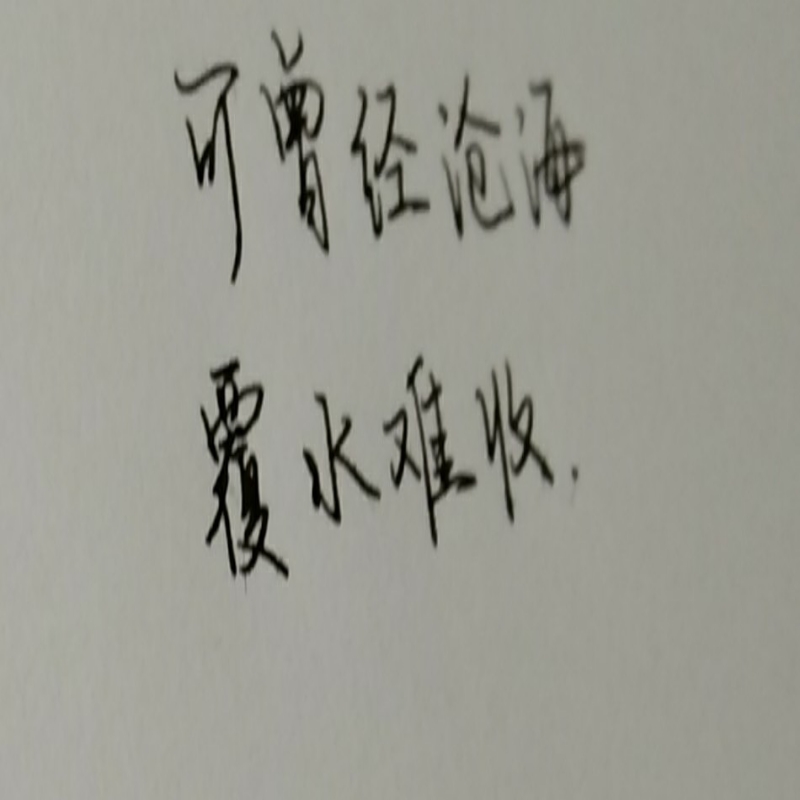 可曾经沧海
覆水难收.